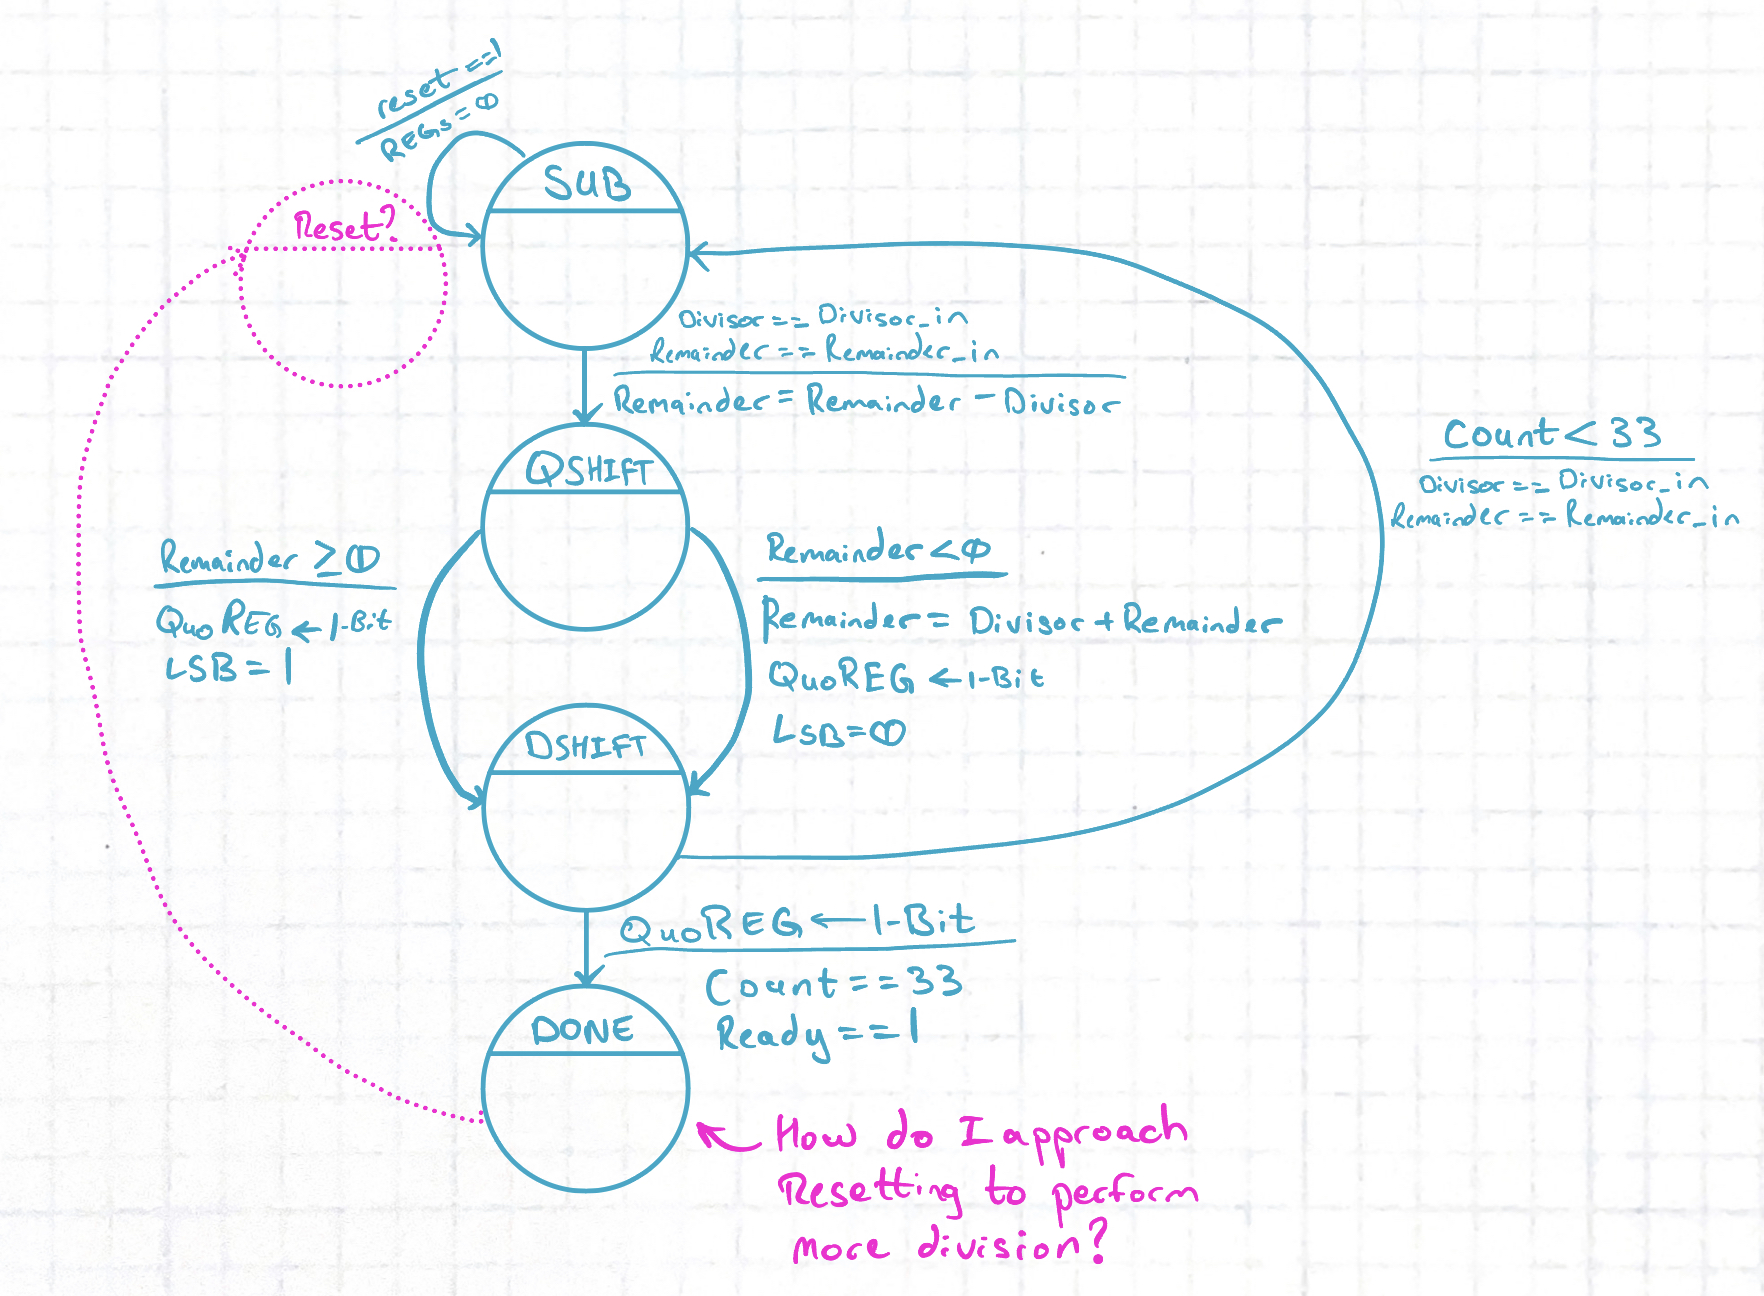 reset ==1
REGs = 0
SUB
Reset?
Divisor == Divisor_in
Remainder == Remainder_in
Remainder = Remainder - Divisor
Count < 33
Divisor == Divisor_in
Remainder == Remainder_in
QSHIFT
Remainder ≥ 0
QuoREG ← 1-Bit
LSB = 1
Remainder < 0
Remainder = Divisor + Remainder
QuoREG ← 1-Bit
LSB = 0
DSHIFT
QuoREG ← 1-Bit
Count == 33
Ready == 1
DONE
How do I approach
Resetting to perform
more division?